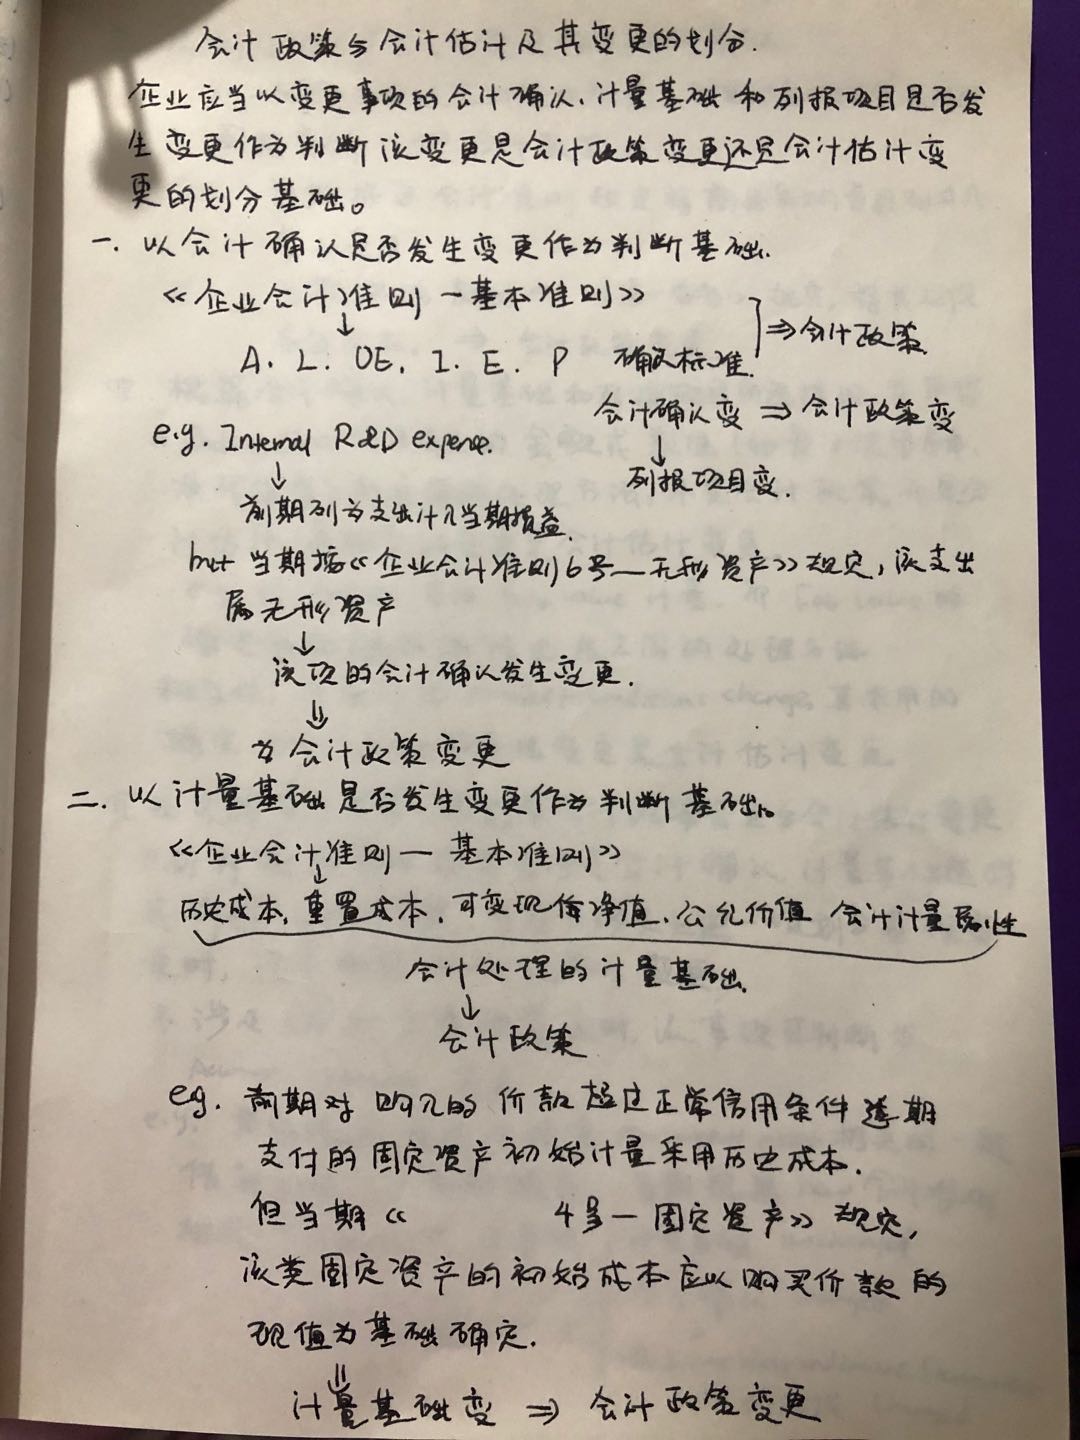 会计政策与会计估计及其变更的划分.
企业应当以变更事项的会计确认、计量基础和列报项目是否发
生变更作为判断该变更是会计政策变更还是会计估计变
更的划分基础。
一. 以会计确认是否发生变更作为判断基础.
《企业会计准则—基本准则》
↓
A. L. OE. I. E. P 确认标准. ⇒会计政策
会计确认变 ⇒ 会计政策变
↓
列报项目变.
e.g. Internal R&D expense.
↓
前期列为支出计入当期损益.
but 当期按《企业会计准则6号—无形资产》规定, 该支出
属无形资产
↓
该项的会计确认发生变更.
⇓
为会计政策变更
二. 以计量基础是否发生变更作为判断基础。
《企业会计准则— 基本准则》
↓
历史成本, 重置成本. 可变现净值. 公允价值 会计计量属性
会计处理的计量基础.
↓
会计政策
eg. 前期对购入的价款超过正常信用条件延期
支付的固定资产初始计量采用历史成本.
但当期《 4号—固定资产》规定,
该类固定资产的初始成本应以购买价款的
现值为基础确定.
⇓
计量基础变 ⇒ 会计政策变更